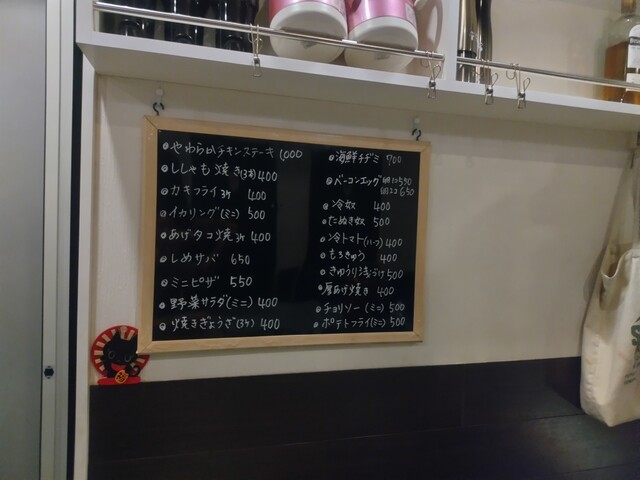 やわらかチキンステーキ 1,000
ししゃも焼き(3本) 400
カキフライ3ケ 400
イカリング(ミニ) 500
あげタコ焼3ケ 400
しめサバ 650
ミニピザ 550
野菜サラダ(ミニ) 400
焼きぎょうざ(3ケ) 400
海鮮チヂミ 700
ベーコンエッグ 1コ 550
2コ 650
冷奴 400
たぬき奴 500
冷トマト(ハーフ) 400
もろきゅう 400
きゅうり浅づけ 500
厚あげ焼き 400
チョリソー(ミニ) 500
ポテトフライ(ミニ) 500